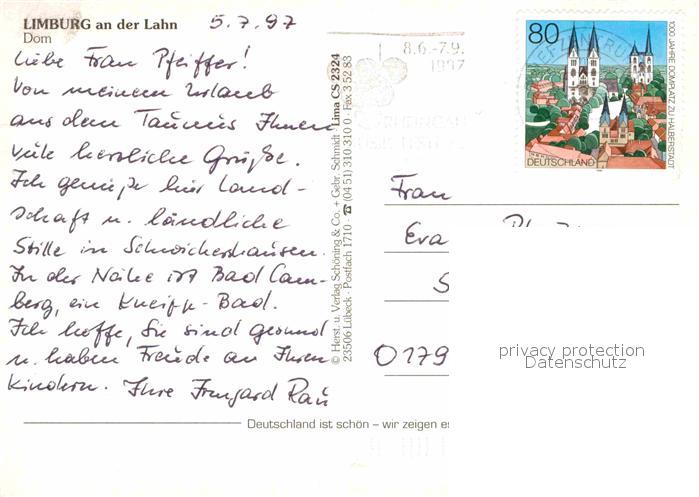 LIMBURG an der Lahn
Dom
5.7.97
Liebe Frau Pfeiffer!
Von meinem Urlaub
aus dem Taunus Ihnen
viele herzliche Grüße.
Ich genieße hier Land-
schaft u. ländliche
Stille in Schwickershausen.
In der Nähe ist Bad Cam-
berg, ein Kneipp-Bad.
Ich hoffe, Sie sind gesund
u. haben Freude an Ihren
Kindern. Ihre Irmgard Rau
Deutschland ist schön – wir zeigen es
© Herst. u. Verlag Schöning & Co. + Gebr. Schmidt · Lima CS 2324
23506 Lübeck · Postfach 1710 · ☎ (04 51) 310 310 0 · Fax 3 52 83
8.6.-7.9.
1997
80
1000 JAHRE DOMPLATZ ZU HALBERSTADT
DEUTSCHLAND
Frau
Eva
S
0179
privacy protection
Datenschutz